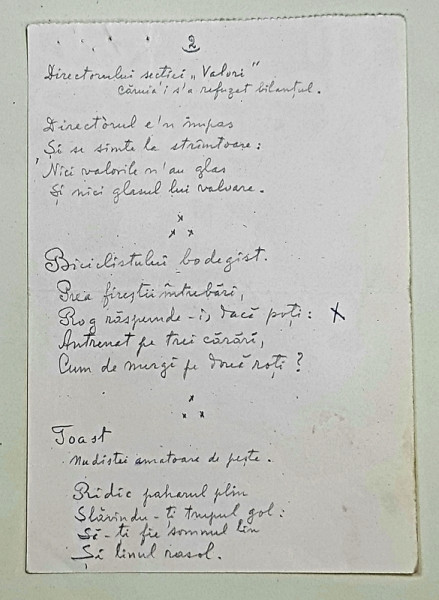 2
Directorului secției „Valori"
Căruia'i s'a refuzat bilanțul.
Directorul e'n impas
Și se simte la strîmtoare:
Nici valorile n'au glas
Și nici glasul lui valoare.
x
x x
Biciclistului bodegist.
Prea fireștii întrebări,
Rog răspunde-i, dacă poți: X
Antrenat pe trei cărări,
Cum de mergi pe două roți?
x
x x
Toast
Nudistei amatoare de pește.
Ridic paharul plin
Slăvindu-ți trupul gol:
Să-ți fie somnul lin
Și linul rasol.